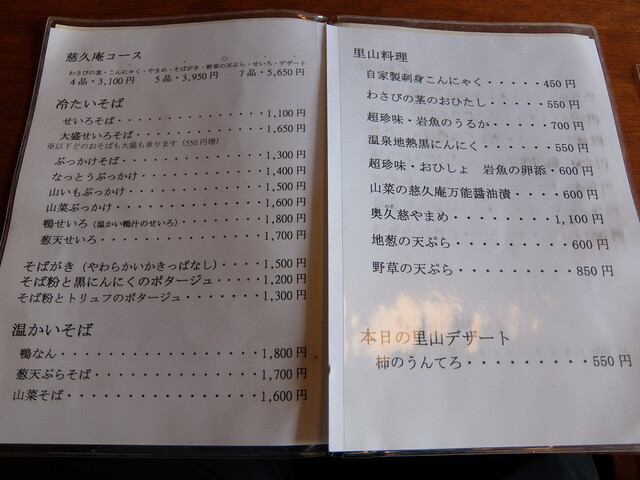 慈久庵コース
わさびの茎・こんにゃく・やまめ・そばがき・野草の天ぷら・せいろ・デザート
4品・3,100円 5品・3,950円 7品・5,650円
冷たいそば
せいろそば・・・・・・・・・・・・・・1,100円
大盛せいろそば・・・・・・・・・・・・1,650円
※以下どのおそばも大盛も承ります(550円増)
ぶっかけそば・・・・・・・・・・・・・1,300円
なっとうぶっかけ・・・・・・・・・・・1,400円
山いもぶっかけ・・・・・・・・・・・・1,500円
山菜ぶっかけ・・・・・・・・・・・・・1,600円
鴨せいろ(温かい鴨汁のせいろ)・・・・・・1,800円
葱天せいろ・・・・・・・・・・・・・・1,700円
そばがき(やわらかいかきっぱなし)・・・・1,500円
そば粉と黒にんにくのポタージュ・・・・・1,200円
そば粉とトリュフのポタージュ・・・・・・1,300円
温かいそば
鴨なん・・・・・・・・・・・・・・・・1,800円
葱天ぷらそば・・・・・・・・・・・・・1,700円
山菜そば・・・・・・・・・・・・・・・1,600円
里山料理
自家製刺身こんにゃく・・・・・450円
わさびの茎のおひたし・・・・・550円
超珍味・岩魚のうるか・・・・・700円
温泉地熱黒にんにく・・・・・・550円
超珍味・おひしょ 岩魚の卵添・600円
山菜の慈久庵万能醤油漬・・・・600円
奥久慈やまめ・・・・・・・・1,100円
地葱の天ぷら・・・・・・・・・600円
野草の天ぷら・・・・・・・・・850円
本日の里山デザート
柿のうんてろ・・・・・・・・・550円